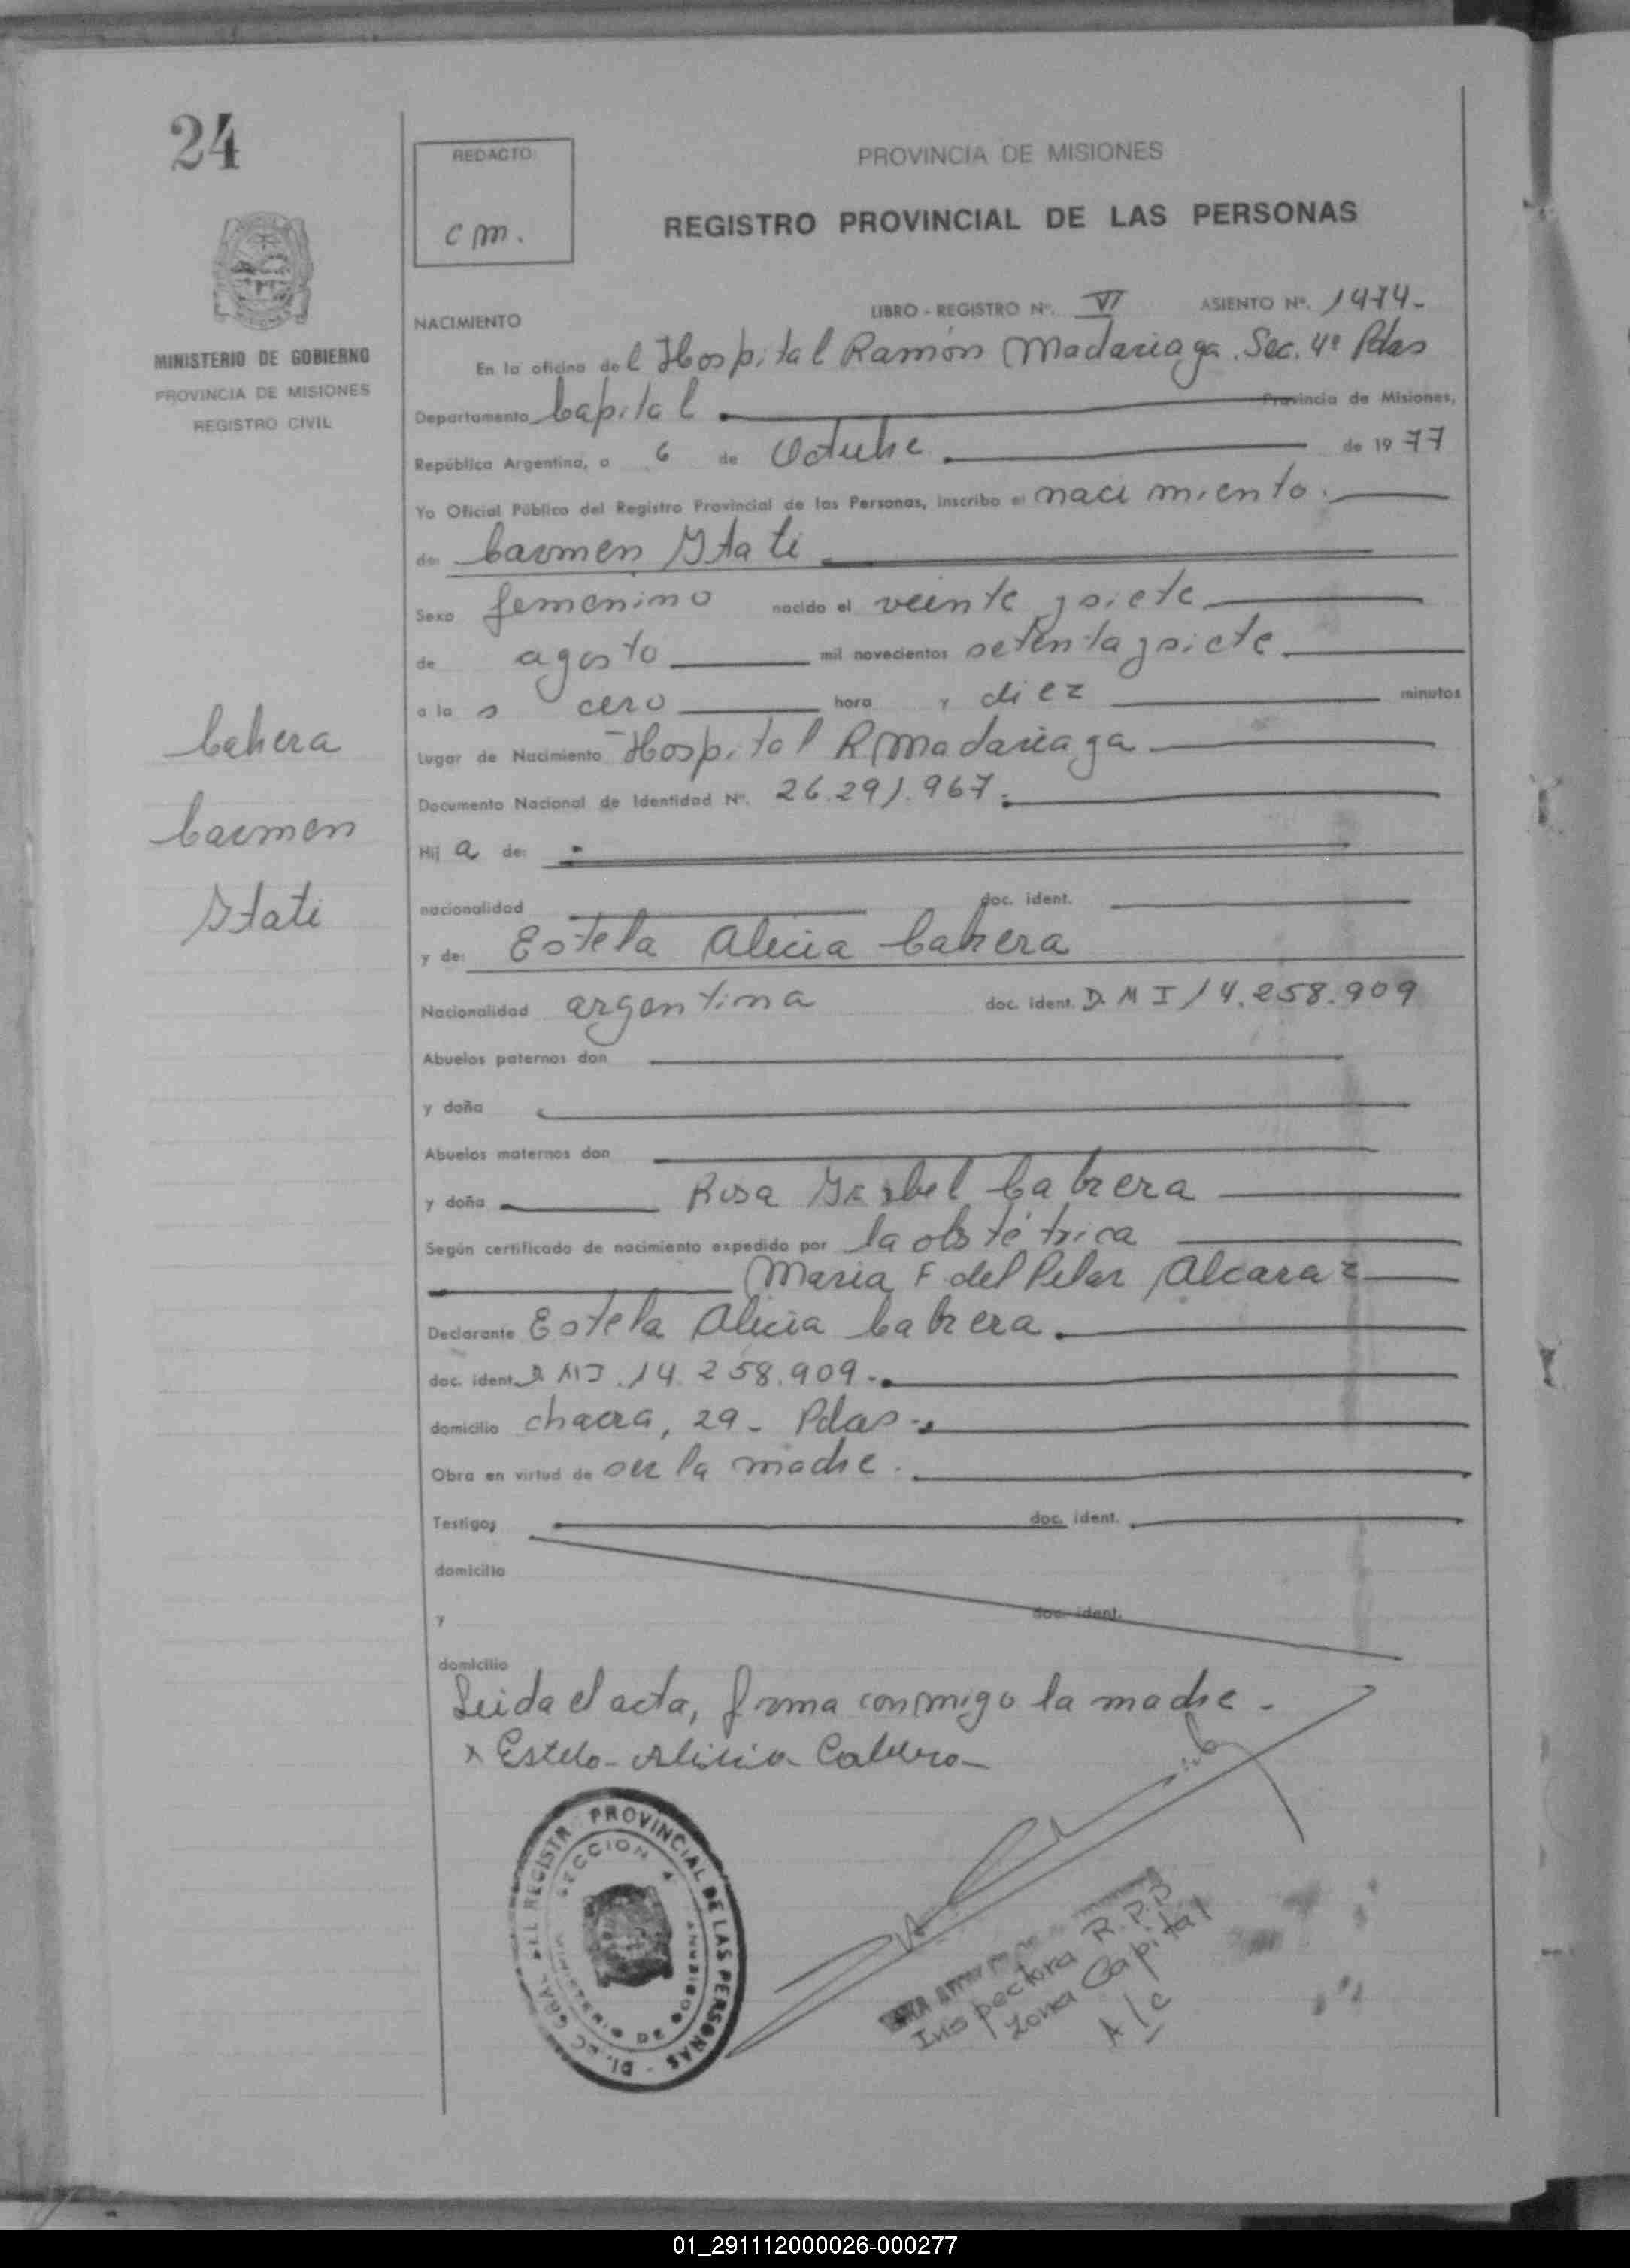 24
REDACTO:
c m.
PROVINCIA DE MISIONES
REGISTRO PROVINCIAL DE LAS PERSONAS
MINISTERIO DE GOBIERNO
PROVINCIA DE MISIONES
REGISTRO CIVIL
NACIMIENTO LIBRO - REGISTRO Nº. VI ASIENTO Nº. 1474-
En la oficina del Hospital Ramón Madariaga. Sec. 4º Pdas
Departamento Capital Provincia de Misiones,
República Argentina, a 6 de Octubre de 1977
Yo Oficial Público del Registro Provincial de las Personas, inscribo el nacimiento.
de: Carmen Itati
Sexo femenino nacido el veinte y siete
de agosto mil novecientos setenta y siete
a la s cero hora y diez minutos
Lugar de Nacimiento Hospital R Madariaga
Documento Nacional de Identidad Nº. 26.291.967.
Hij a de:
nacionalidad doc. ident.
y de: Estela Alicia Cabrera
Nacionalidad argentina doc. ident. D.N I 14.258.909
Abuelos paternos don
y doña
Abuelos maternos don
y doña Rosa Isabel Cabrera
Según certificado de nacimiento expedido por la obstétrica
Maria F. del Pilar Alcaraz
Declarante Estela Alicia Cabrera.
doc. ident. D NI. 14.258.909-.
domicilio chacra, 29- Pdas-.
Obra en virtud de ser la madre.
Testigos doc. ident.
domicilio
y doc. ident.
domicilio
Leida el acta, firma conmigo la madre-
x Estela Alicia Cabrera
Cabrera
Carmen
Itati
DIREC GRAL DEL REGISTR PROVINCIAL DE LAS PERSONAS -
SECCION 4
MINISTERIO DE GOBIERNO
Inspectora R.P.P
Zona Capital
A/C
01_291112000026-000277